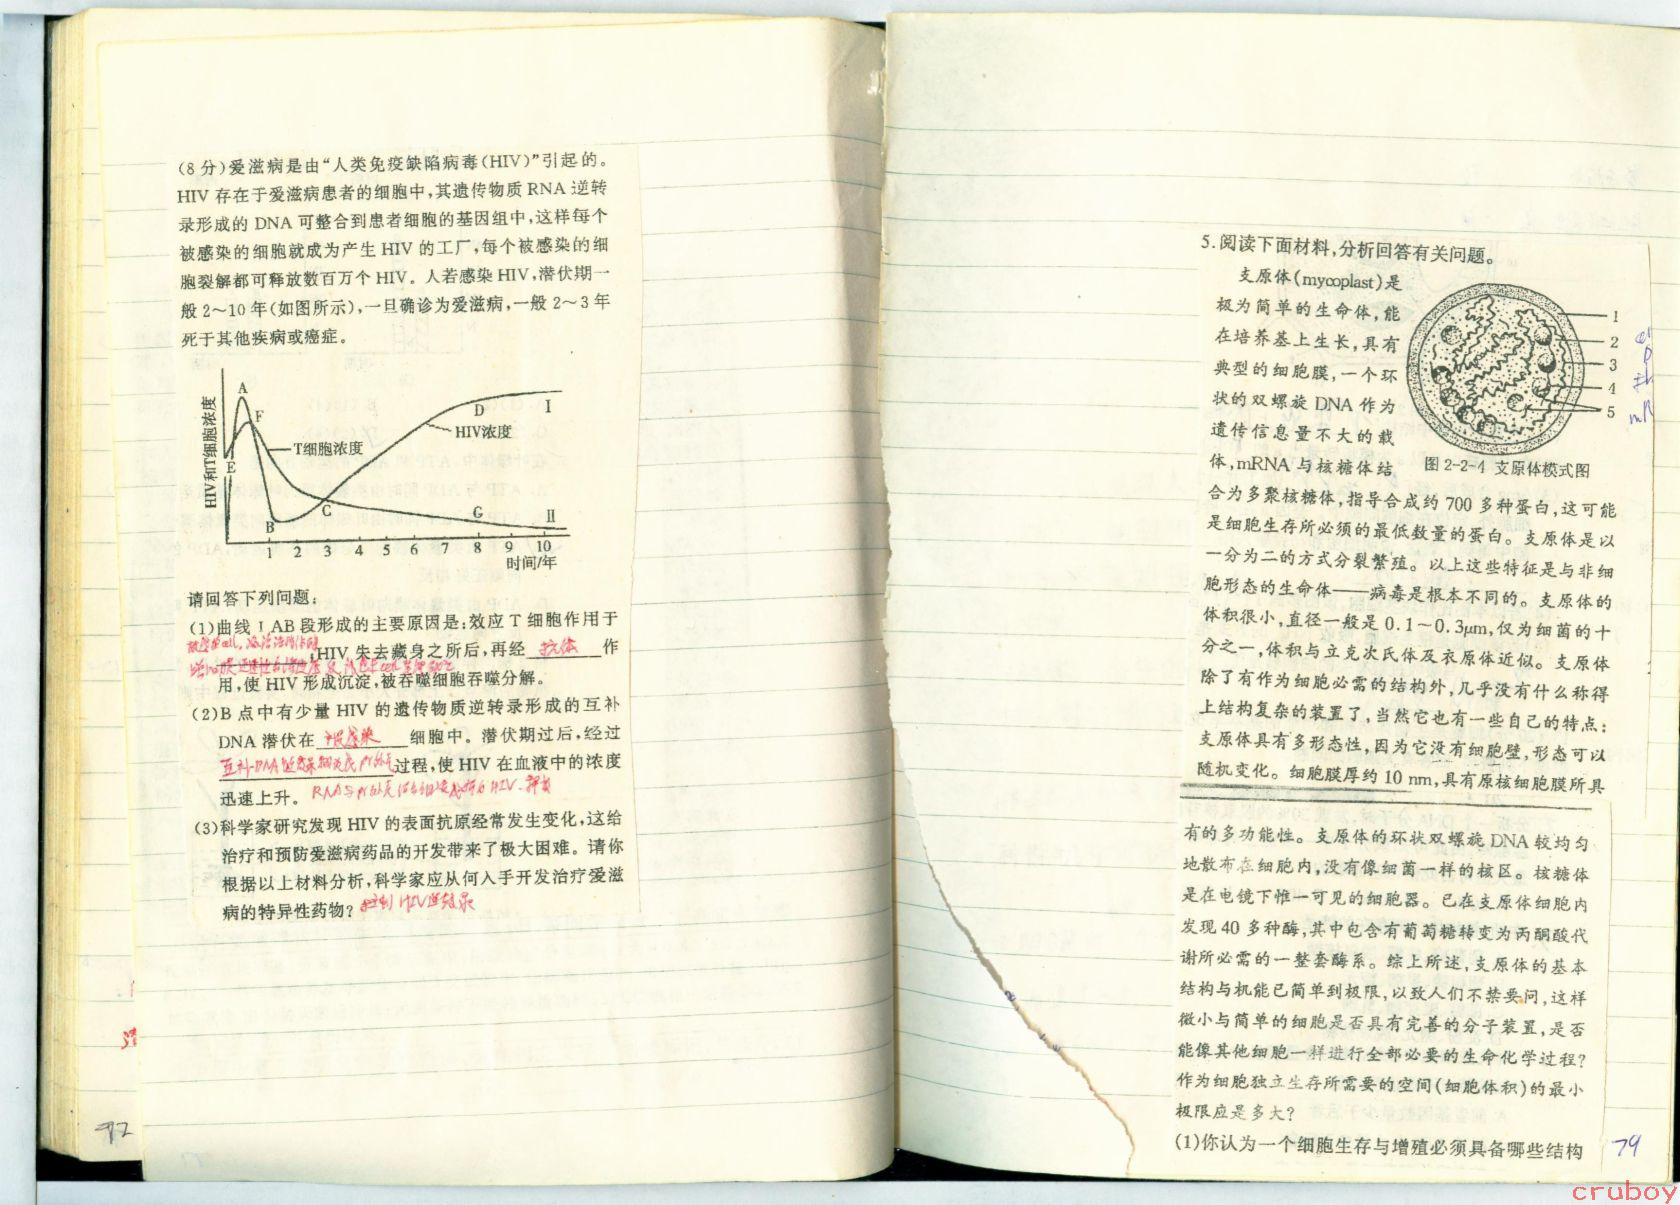 (8分)爱滋病是由“人类免疫缺陷病毒(HIV)”引起的。
HIV 存在于爱滋病患者的细胞中,其遗传物质 RNA 逆转
录形成的 DNA 可整合到患者细胞的基因组中,这样每个
被感染的细胞就成为产生 HIV 的工厂,每个被感染的细
胞裂解都可释放数百万个 HIV。人若感染 HIV,潜伏期一
般 2～10 年(如图所示),一旦确诊为爱滋病,一般 2～3 年
死于其他疾病或癌症。
HIV和T细胞浓度
A
F
E
B
C
D
G
I
II
T细胞浓度
HIV浓度
1 2 3 4 5 6 7 8 9 10
时间/年
请回答下列问题:
(1)曲线 I AB 段形成的主要原因是:效应 T 细胞作用于
,HIV 失去藏身之所后,再经 抗体 作
用,使 HIV 形成沉淀,被吞噬细胞吞噬分解。
(2)B 点中有少量 HIV 的遗传物质逆转录形成的互补
DNA 潜伏在 被感染 细胞中。潜伏期过后,经过
过程,使 HIV 在血液中的浓度
迅速上升。
(3)科学家研究发现 HIV 的表面抗原经常发生变化,这给
治疗和预防爱滋病药品的开发带来了极大困难。请你
根据以上材料分析,科学家应从何入手开发治疗爱滋
病的特异性药物? 抑制 HIV逆转录
5.阅读下面材料,分析回答有关问题。
支原体(mycoplast)是
极为简单的生命体,能
在培养基上生长,具有
典型的细胞膜,一个环
状的双螺旋 DNA 作为
遗传信息量不大的载
体,mRNA 与核糖体结
1
2
3
4
5
图 2-2-4 支原体模式图
合为多聚核糖体,指导合成约 700 多种蛋白,这可能
是细胞生存所必须的最低数量的蛋白。支原体是以
一分为二的方式分裂繁殖。以上这些特征是与非细
胞形态的生命体——病毒是根本不同的。支原体的
体积很小,直径一般是 0.1～0.3μm,仅为细菌的十
分之一,体积与立克次氏体及衣原体近似。支原体
除了有作为细胞必需的结构外,几乎没有什么称得
上结构复杂的装置了,当然它也有一些自己的特点:
支原体具有多形态性,因为它没有细胞壁,形态可以
随机变化。细胞膜厚约 10 nm,具有原核细胞膜所具
有的多功能性。支原体的环状双螺旋 DNA 较均匀
地散布在细胞内,没有像细菌一样的核区。核糖体
是在电镜下惟一可见的细胞器。已在支原体细胞内
发现 40 多种酶,其中包含有葡萄糖转变为丙酮酸代
谢所必需的一整套酶系。综上所述,支原体的基本
结构与机能已简单到极限,以致人们不禁要问,这样
微小与简单的细胞是否具有完善的分子装置,是否
能像其他细胞一样进行全部必要的生命化学过程?
作为细胞独立生存所需要的空间(细胞体积)的最小
极限应是多大?
(1)你认为一个细胞生存与增殖必须具备哪些结构
79
cruboy